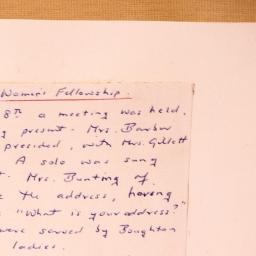 Women's Fellowship.
8th a meeting was held.
present. Mrs. Barber
presided, with Mrs. Gillett
A solo was sung
Mrs. Bunting of
the address, having
"What is your address?"
were served by Boughton
ladies.